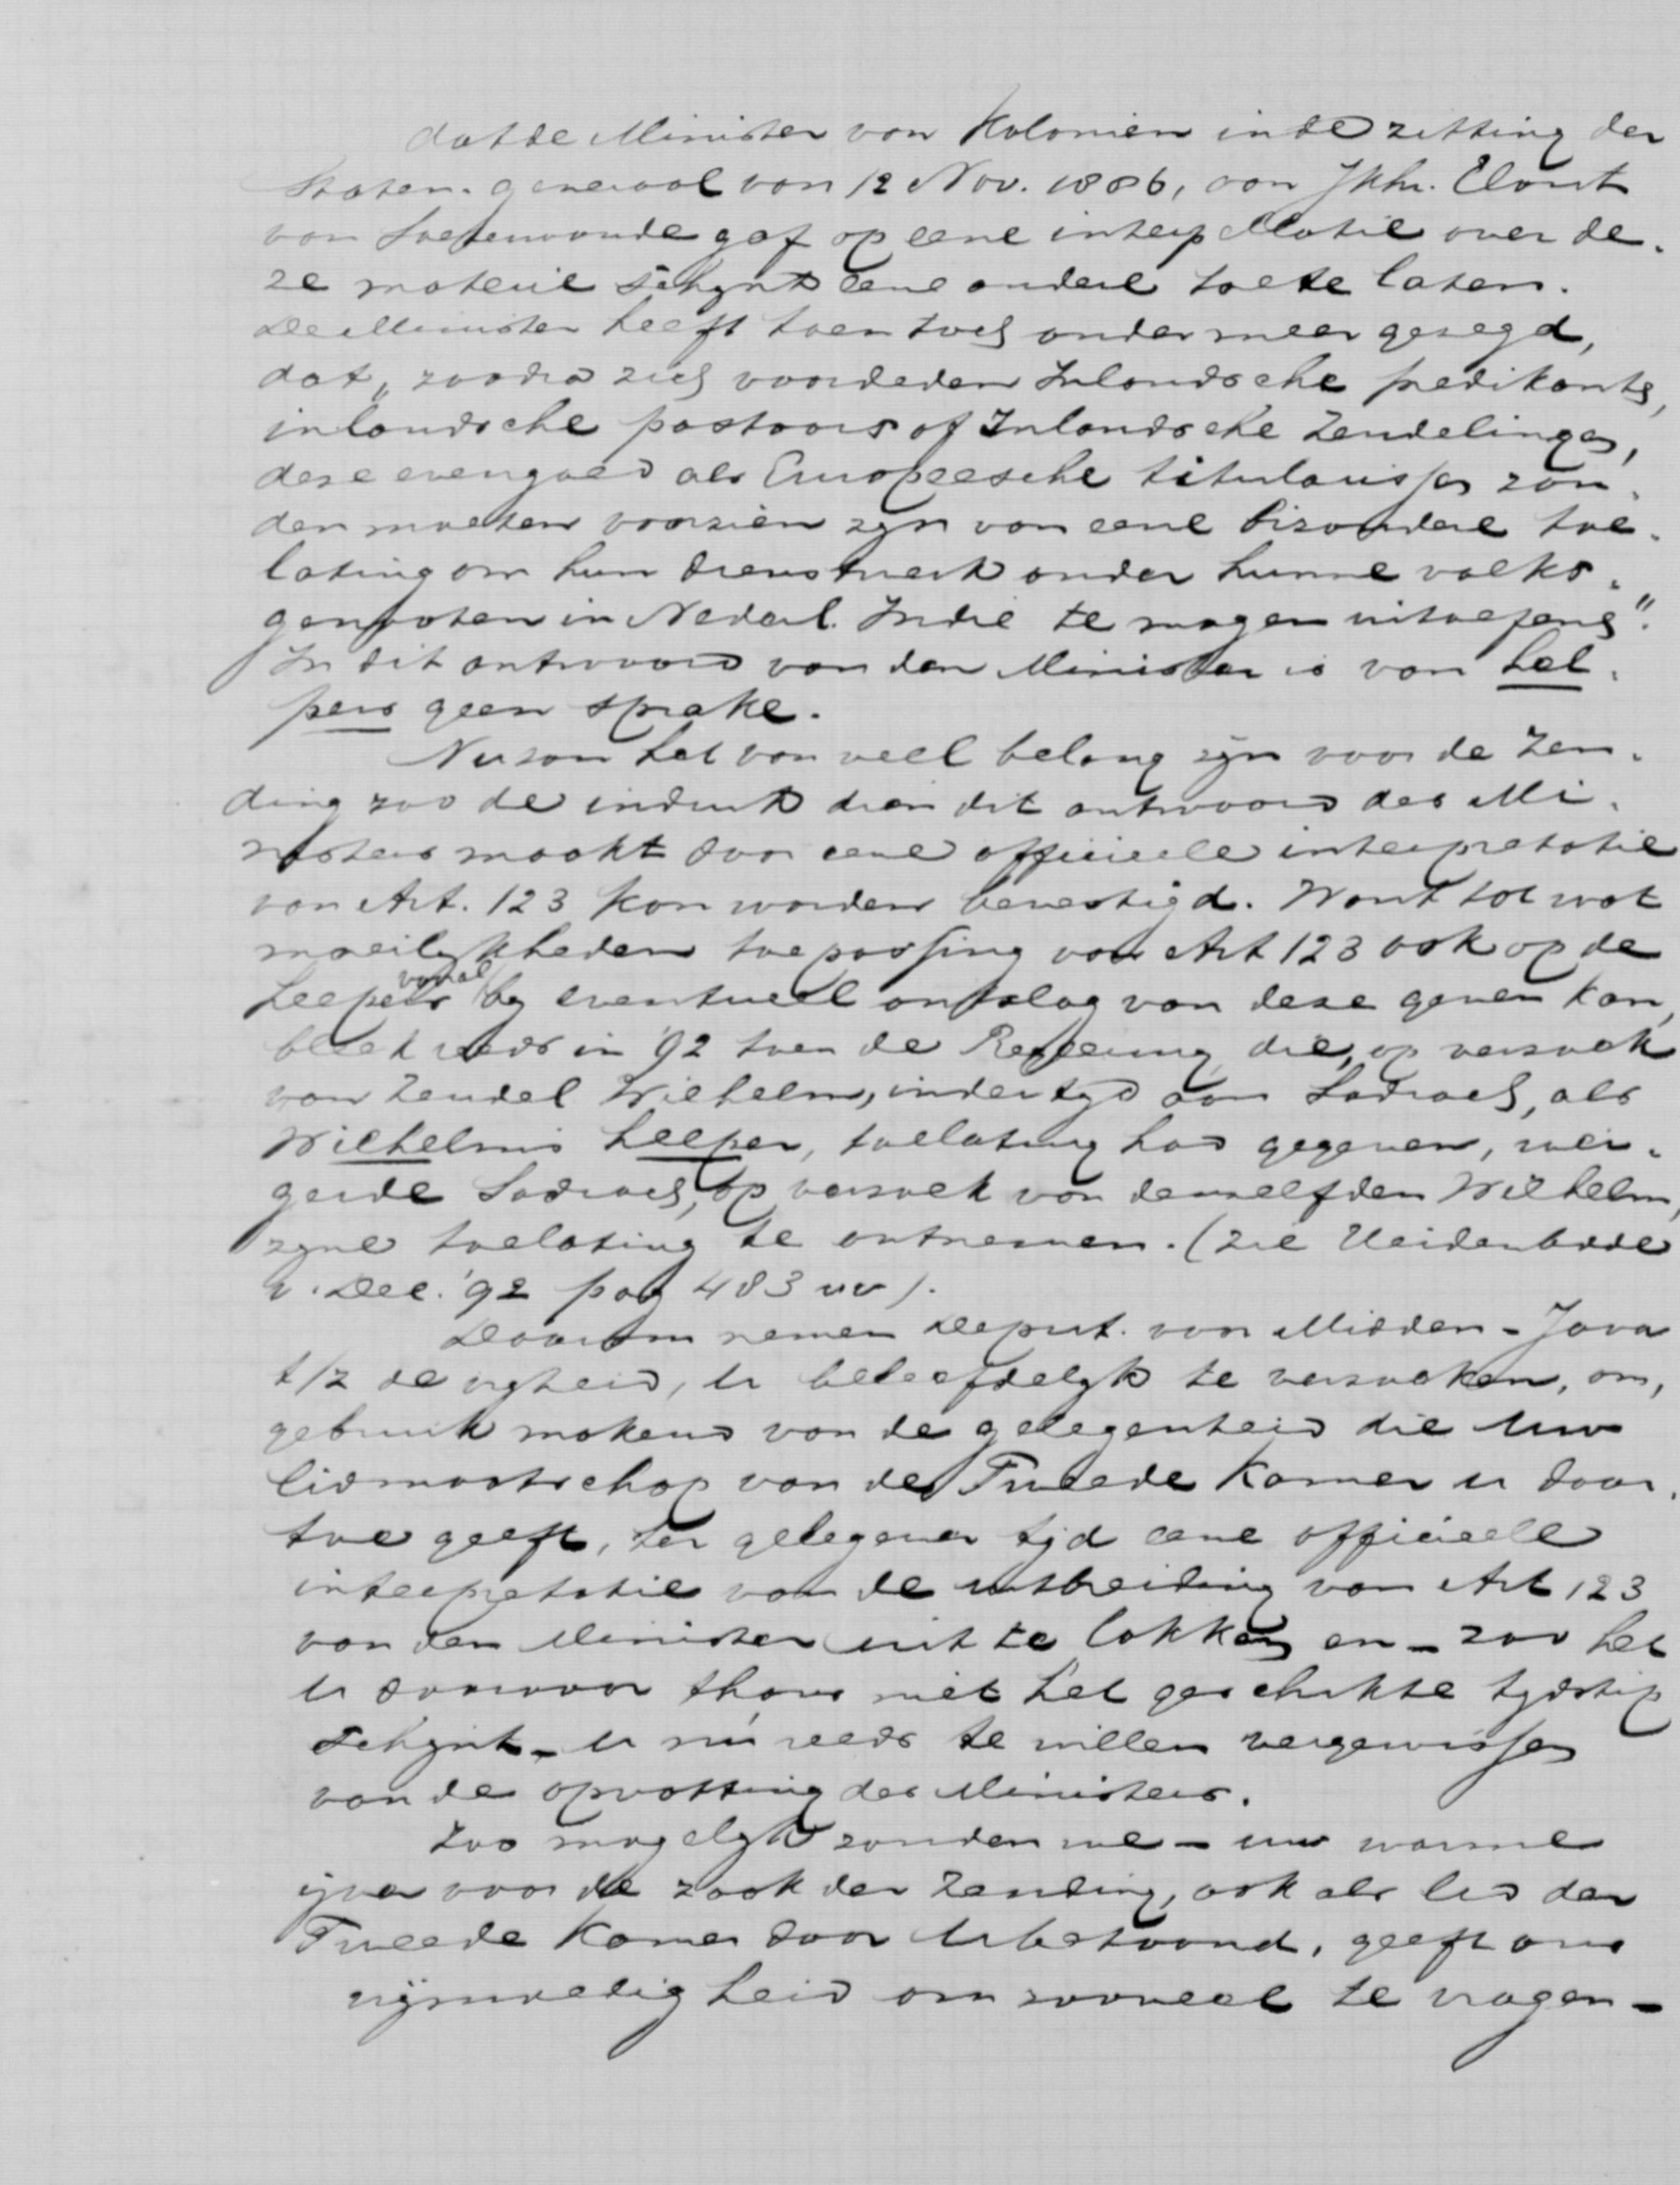 dat de Minister van Koloniën in de zitting der
Staten-generaal van 12 Nov. 1886, aan Jkhr. Elout
van Soeterwoude gaf op eene interpellatie over de-
ze materie schynt eene andere toe te laten.
De Minister heeft toen toch onder meer gezegd,
dat "zoodra zich voordeden Inlandsche predikants,
inlandsche pastoors of Inlandsche Zendelingen,
deze evengoed als Europeesche titularissen zou-
den moeten voorzien zyn van eene bizondere toe-
lating om hun dienstwerk onder hunne volks-
genooten in Nederl. Indie te mogen uitoefenen".
In dit antwoord van den Minister is van hel-
pers geen sprake.
Nu zou het van veel belang zyn voor de Zen-
ding zoo de indruk dien dit antwoord des Mi-
nisters maakt door eene officieele interpretatie
van Art. 123 kon worden bevestigd. Want tot wat
moeilykheden toepassing van Art 123 ook op de
helpers vooral by eventueel ontslag van deze geven kan,
bleek reeds in '92 toen de Regeering die, op verzoek
van Zendel Wilhelm, indertyd aan Sadrach, als
Wilhelms helper, toelating had gegeven, wei-
gerde Sadrach, op verzoek van denzelfden Wilhelm,
zyne toelating te ontnemen. (Zie Heidenbode
v. Dec. '92 pag 483 vv).
Daarom nemen Deput. voor Midden-Java
t/z de vryheid, U beleefdelyk te verzoeken, om,
gebruik makend van de gelegenheid die Uw
lidmaatschap van de Tweede Kamer U daar-
toe geeft, ter gelegener tyd eene officieele
interpretatie van de uitbreiding van Art 123
van den Minister uit te lokken en - zoo het
U daarvoor thans niet het geschikte tydstip
schynt - U nú reeds te willen vergewissen
van de opvatting des Ministers.
Zoo mogelyk zouden we - uw warme
ijver voor de zaak der Zending, ook als lid der
Tweede Kamer door U betoond, geeft ons
vrijmoedigheid om zooveel te vragen -